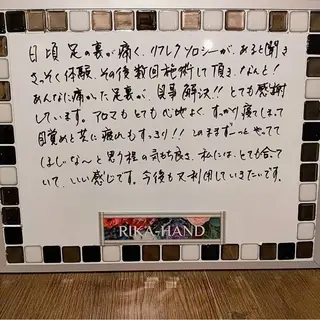 日頃 足の裏が痛く、リフレクソロジーが、あると聞き
さっそく体験 その後数回施術して頂き、なんと!
あんなに痛かった足裏が、見事 解決!! とても感謝
しています。アロマもとても心地よく、すっかり寝てしまって
目覚めと共に疲れもすっきり!! このままずーっとやってて
ほしいな〜と思う程の気持ち良さ、私には、とても合って
いて、いい感じです。今後も又利用していきたいです。
RIKA-HAND